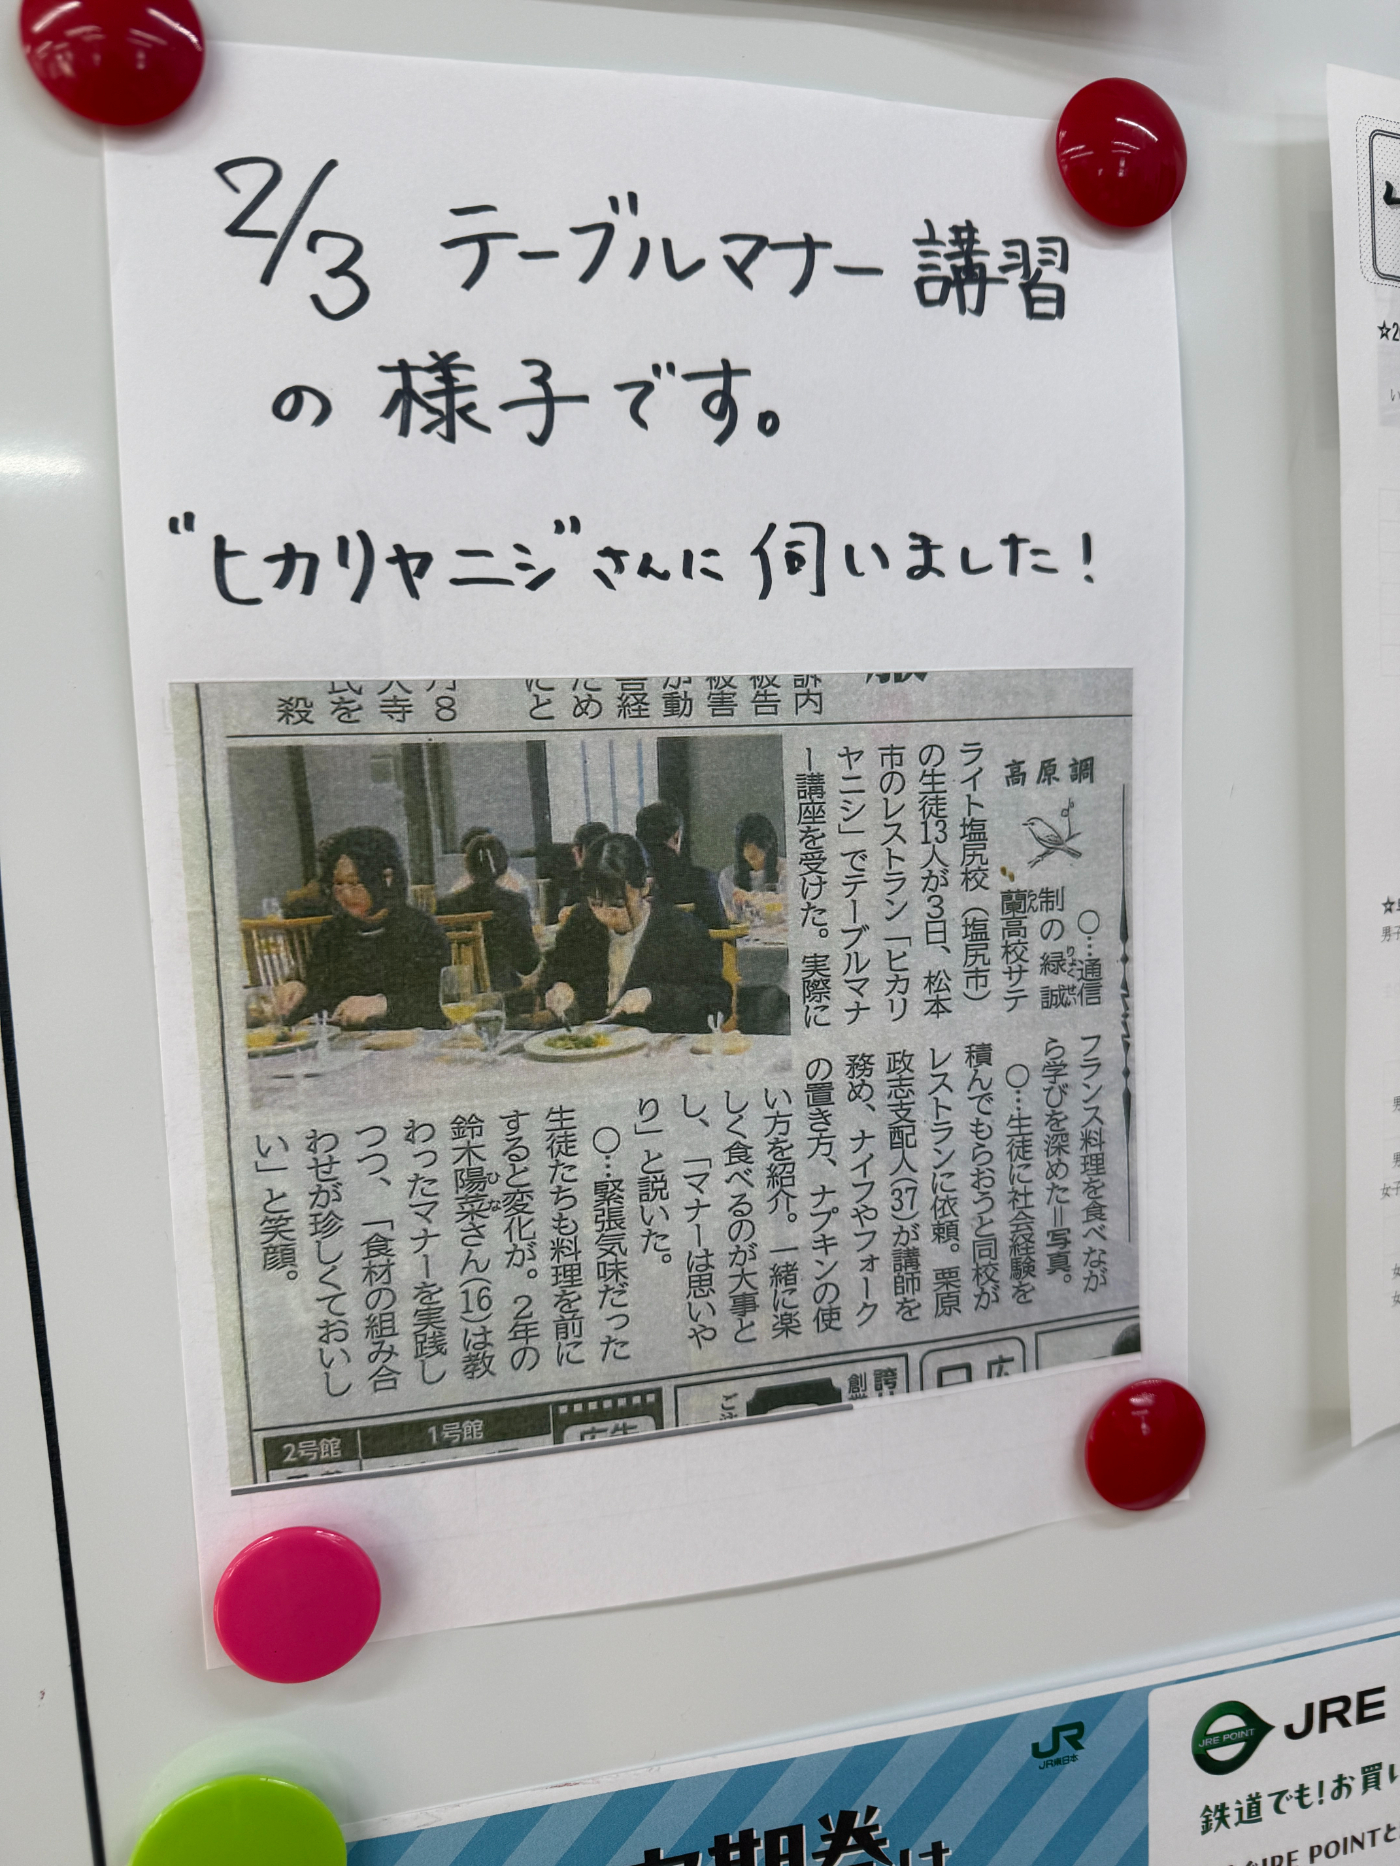 2/3 テーブルマナー講習
の様子です。
"ヒカリヤニシ"さんに伺いました!
訴内
被告
被害
が動
営経
ため
にと
月8
大寺
民を
殺
高原調
○…通信
制の緑誠
りょくせい
蘭高校サテ
らん
ライト塩尻校(塩尻市)
の生徒13人が3日、松本
市のレストラン「ヒカリ
ヤニシ」でテーブルマナ
ー講座を受けた。実際に
フランス料理を食べなが
ら学びを深めた=写真。
○…生徒に社会経験を
積んでもらおうと同校が
レストランに依頼。栗原
政志支配人(37)が講師を
務め、ナイフやフォーク
の置き方、ナプキンの使
い方を紹介。一緒に楽
しく食べるのが大事と
し、「マナーは思いや
り」と説いた。
○…緊張気味だった
生徒たちも料理を前に
すると変化が。2年の
鈴木陽菜さん(16)は教
ひな
わったマナーを実践し
つつ、「食材の組み合
わせが珍しくておいし
い」と笑顔。
2号館
1号館
広告
ご注
創業
誇り
広
☆2
い
男子
女子
JR
JR東日本
定期券は
JRE POINT
JRE
鉄道でも!お買い
JRE POINTと